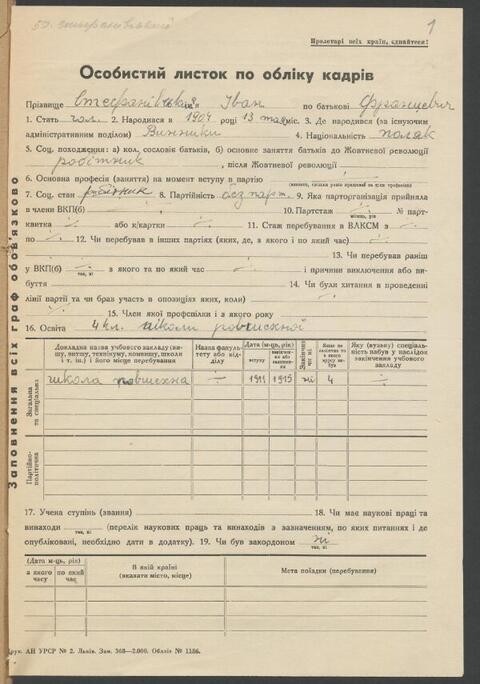 1
Пролетарі всіх країн, єднайтеся!
Особистий листок по обліку кадрів
Прізвище Стефанівський Ім'я Іван по батькові Францевич
1. Стать чол. 2. Народився в 1904 році 13 мая міс. 3. Де народився (за існуючим
адміністративним поділом) Винники 4. Національність поляк
5. Соц. походження: а) кол. сословія батьків, б) основне заняття батьків до Жовтневої революції
робітник, після Жовтневої революції
6. Основна професія (заняття) на момент вступу в партію
7. Соц. стан робітник 8. Партійність безпарт. 9. Яка парторганізація прийняла
в члени ВКП(б) ÷ 10. Партстаж ÷ № парт-
місяць, рік
квитка ÷ або к/картки ÷ 11. Стаж перебування в ВЛКСМ з
по ÷ 12. Чи перебував в інших партіях (яких, де, з якого і по який час)
÷ 13. Чи перебував раніш
у ВКП(б) ÷ з якого та по який час ÷ і причини виключення або ви-
так, ні
буття 14. Чи були хитання в проведенні
лінії партії та чи брав участь в опозиціях яких, коли) ÷
÷ 15. Член якої профспілки і з якого року
16. Освіта 4 кл. школи повшехної
Докладна назва учбового закладу (ви-
шу, витшу, технікуму, комвишу, школи
і т. ін.) і його місце перебування
Назва факуль-
тету або від-
ділу
Дата (м-ць, рік)
вступу
Закінчив чи ні
Яку (вузьку) спеціаль-
ність набув у наслідок
закінчення учбового
закладу
Загальна та спеціальна
школа повшехна ÷ 1911 1915 ні 4 ÷
Партійно-політична
Заповнення всіх граф обов'язково
17. Учена ступінь (звання) 18. Чи має наукові праці та
винаходи (перелік наукових праць та винаходів з зазначенням, по яких питаннях і де
так, ні
опубліковані, необхідно дати в додатку). 19. Чи був закордоном ні
так, ні
(Дата м-ць, рік)
з якого часу
по який час
В якій країні
(вказати місто, місце)
Мета поїздки (перебування)
Друк. АН УРСР № 2. Львів. Зам. 368—2.000. Обллів № 1186.